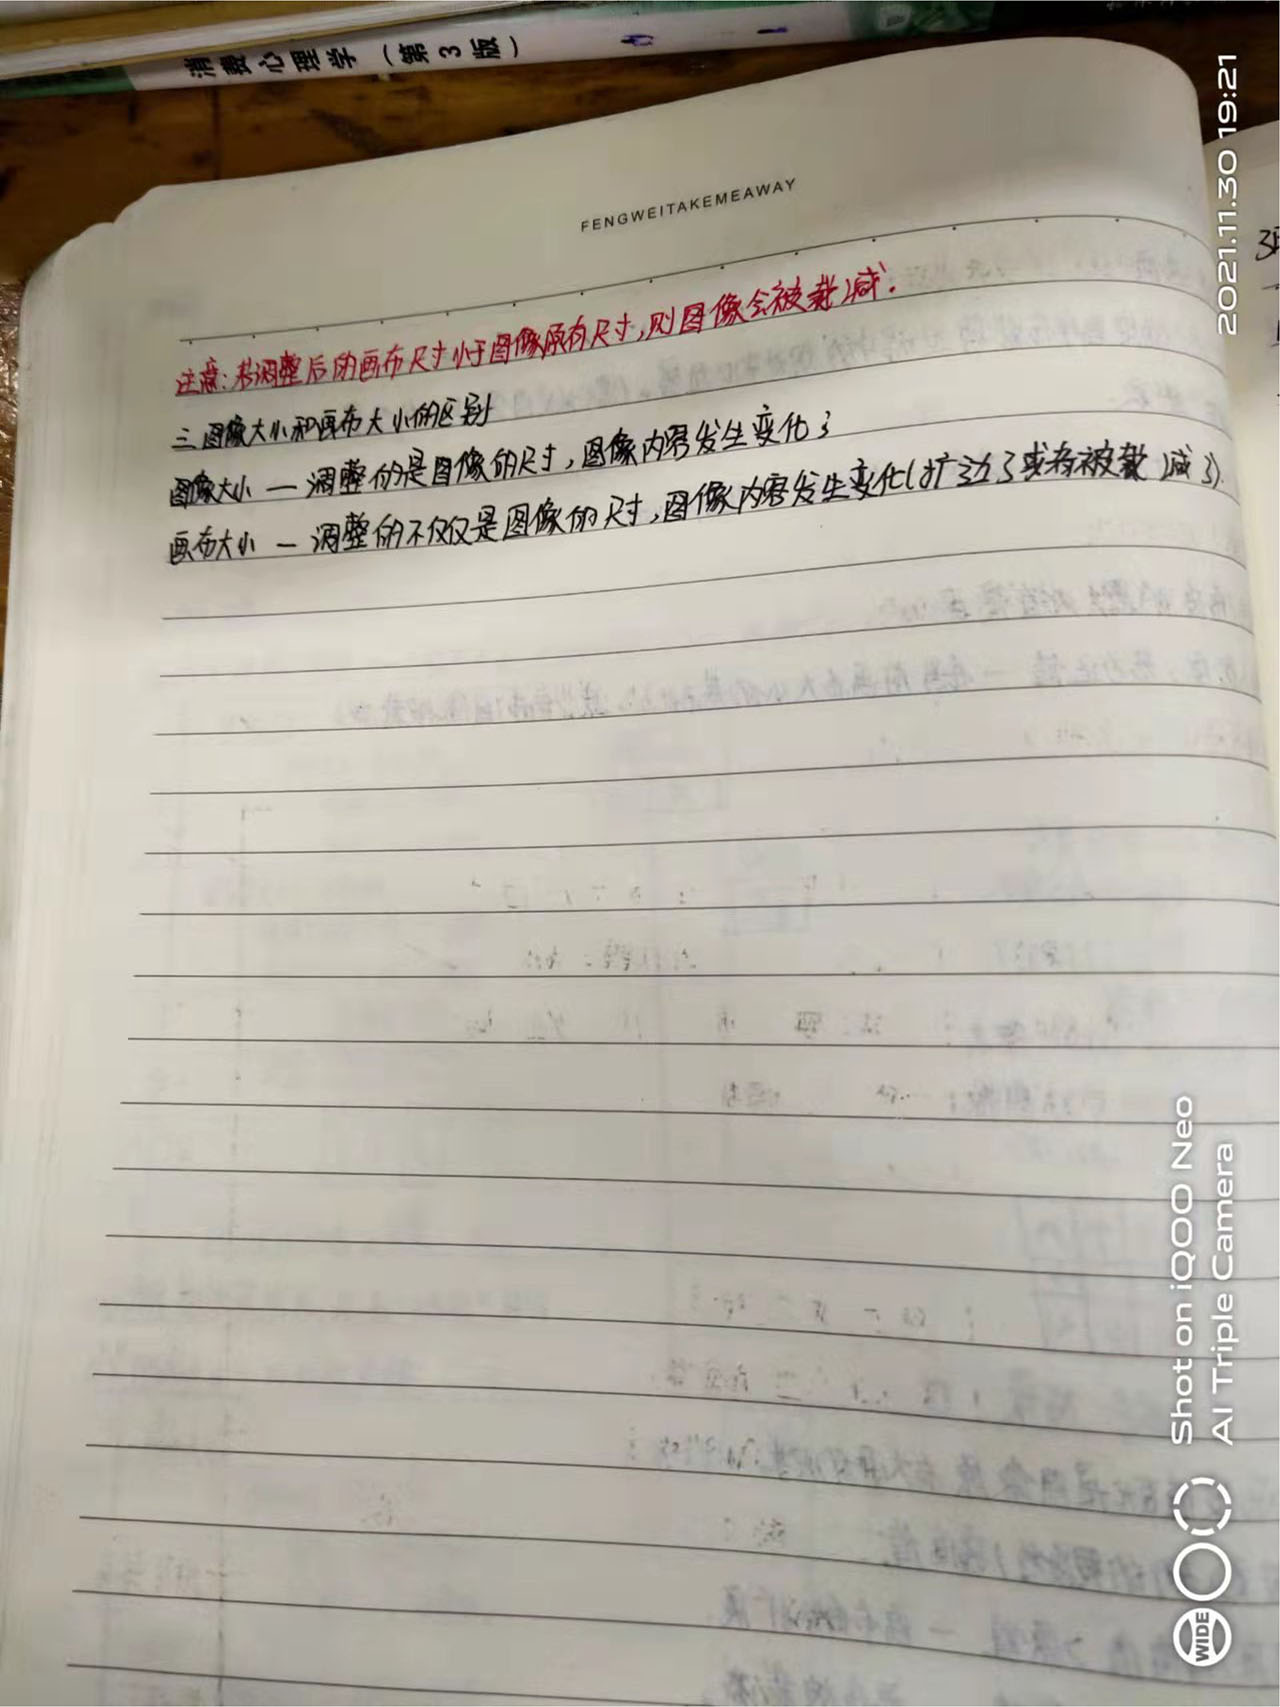 消费心理学（第3版）
FENGWEITAKEMEAWAY
注意：若调整后的画布尺寸小于图像原有尺寸，则图像会被裁减.
三 图像大小和画布大小的区别
图像大小 — 调整的是图像的尺寸，图像内容发生变化了
画布大小 — 调整的不仅仅是图像的尺寸，图像内容发生变化(扩边了或者被裁减了).
2021.11.30 19:21
Shot on iQOO Neo
AI Triple Camera
WIDE